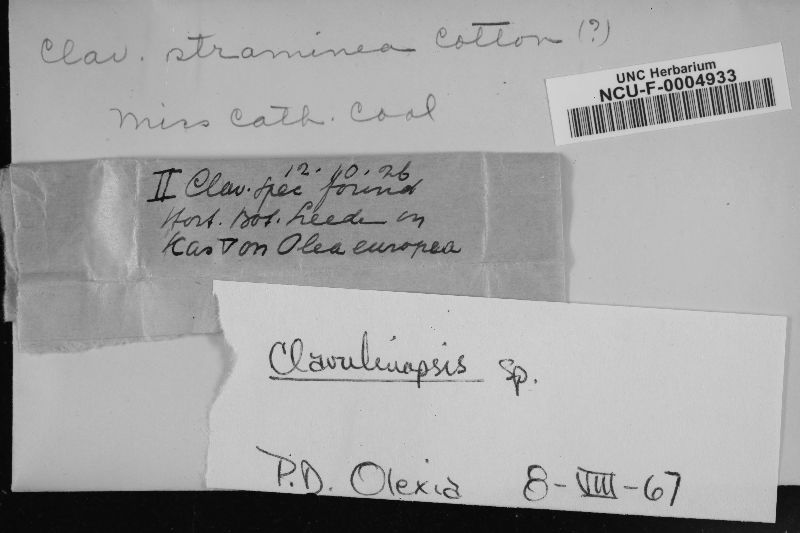 Clav. straminea Cotton (?)
UNC Herbarium
NCU-F-0004933
Miss Cath. Cool
12.10.26
II Clav. spec found
Hort. Bot. Leede in
Kas V on Olea europea
Clavulinopsis sp.
P.D. Olexia 8-VIII-67